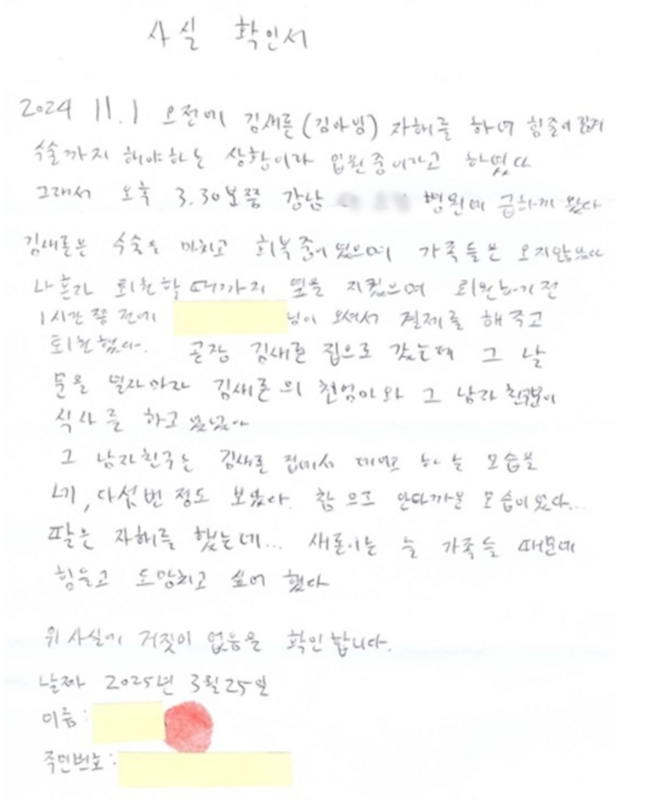 사실 확인서
2024 11.1 오전에 김새론(김아임) 자해를 하여 힘줄이 끊겨
수술까지 해야하는 상황이라 입원중이라고 하였다
그래서 오후 3.30분쯤 강남 병원에 급하게 왔다
김새론은 수술을 마치고 회복중이였으며 가족들은 오지않았다
나 혼자 퇴원할때까지 옆을 지켰으며 퇴원하기전
1시간 쯤 전에 님이 오셔서 결제를 해주고
퇴원했다. 곧장 김새론 집으로 갔는데 그 날
문을 열자마자 김새론의 친엄마와 그 남자친구분이
식사를 하고 있었다
그 남자친구는 김새론 집에서 하는 모습을
네, 다섯번 정도 보았다. 참으로 안타까운 모습이였다...
팔은 자해를 했는데... 새론이는 늘 가족들 때문에
힘들고 도망치고 싶어 했다
위 사실에 거짓이 없음을 확인합니다.
날짜 2025년 3월25일
이름:
주민번호: